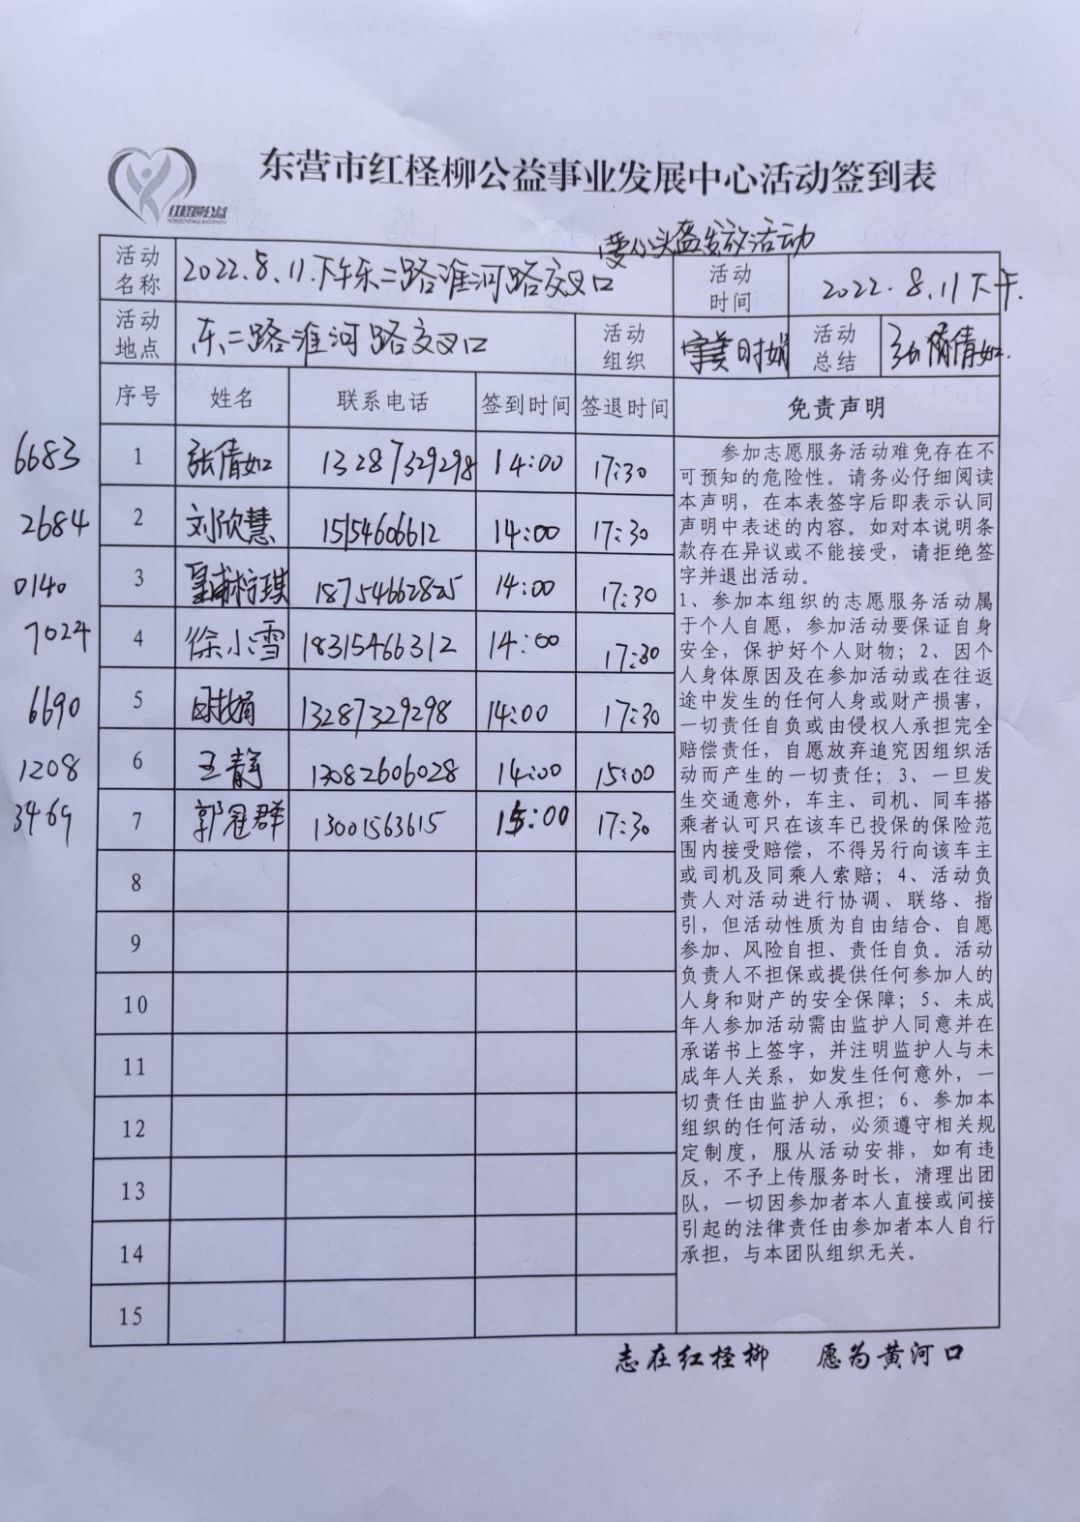 东营市红柽柳公益事业发展中心活动签到表
红柽柳公益
爱心头盔发放活动
活动名称 2022.8.11.下午东二路淮河路交叉口 活动时间 2022.8.11下午.
活动地点 东二路淮河路交叉口 活动组织 时娟 活动总结 张倩如.
序号 姓名 联系电话 签到时间 签退时间 免责声明
6683 1 张倩如 13287329298 14:00 17:30
2684 2 刘欣慧 15154606612 14:00 17:30
0140 3 18754662825 14:00 17:30
7024 4 徐小雪 18315466312 14:00 17:30
6690 5 时娟 13287329298 14:00 17:30
1208 6 王静 13082606028 14:00 15:00
3469 7 郭冠群 13001563615 15:00 17:30
8
9
10
11
12
13
14
15
参加志愿服务活动难免存在不
可预知的危险性。请务必仔细阅读
本声明，在本表签字后即表示认同
声明中表述的内容。如对本说明条
款存在异议或不能接受，请拒绝签
字并退出活动。
1、参加本组织的志愿服务活动属
于个人自愿，参加活动要保证自身
安全，保护好个人财物；2、因个
人身体原因及在参加活动或在往返
途中发生的任何人身或财产损害，
一切责任自负或由侵权人承担完全
赔偿责任，自愿放弃追究因组织活
动而产生的一切责任；3、一旦发
生交通意外，车主、司机、同车搭
乘者认可只在该车已投保的保险范
围内接受赔偿，不得另行向该车主
或司机及同乘人索赔；4、活动负
责人对活动进行协调、联络、指
引，但活动性质为自由结合、自愿
参加、风险自担、责任自负。活动
负责人不担保或提供任何参加人的
人身和财产的安全保障；5、未成
年人参加活动需由监护人同意并在
承诺书上签字，并注明监护人与未
成年人关系，如发生任何意外，一
切责任由监护人承担；6、参加本
组织的任何活动，必须遵守相关规
定制度，服从活动安排，如有违
反，不予上传服务时长，清理出团
队，一切因参加者本人直接或间接
引起的法律责任由参加者本人自行
承担，与本团队组织无关。
志在红柽柳 愿为黄河口